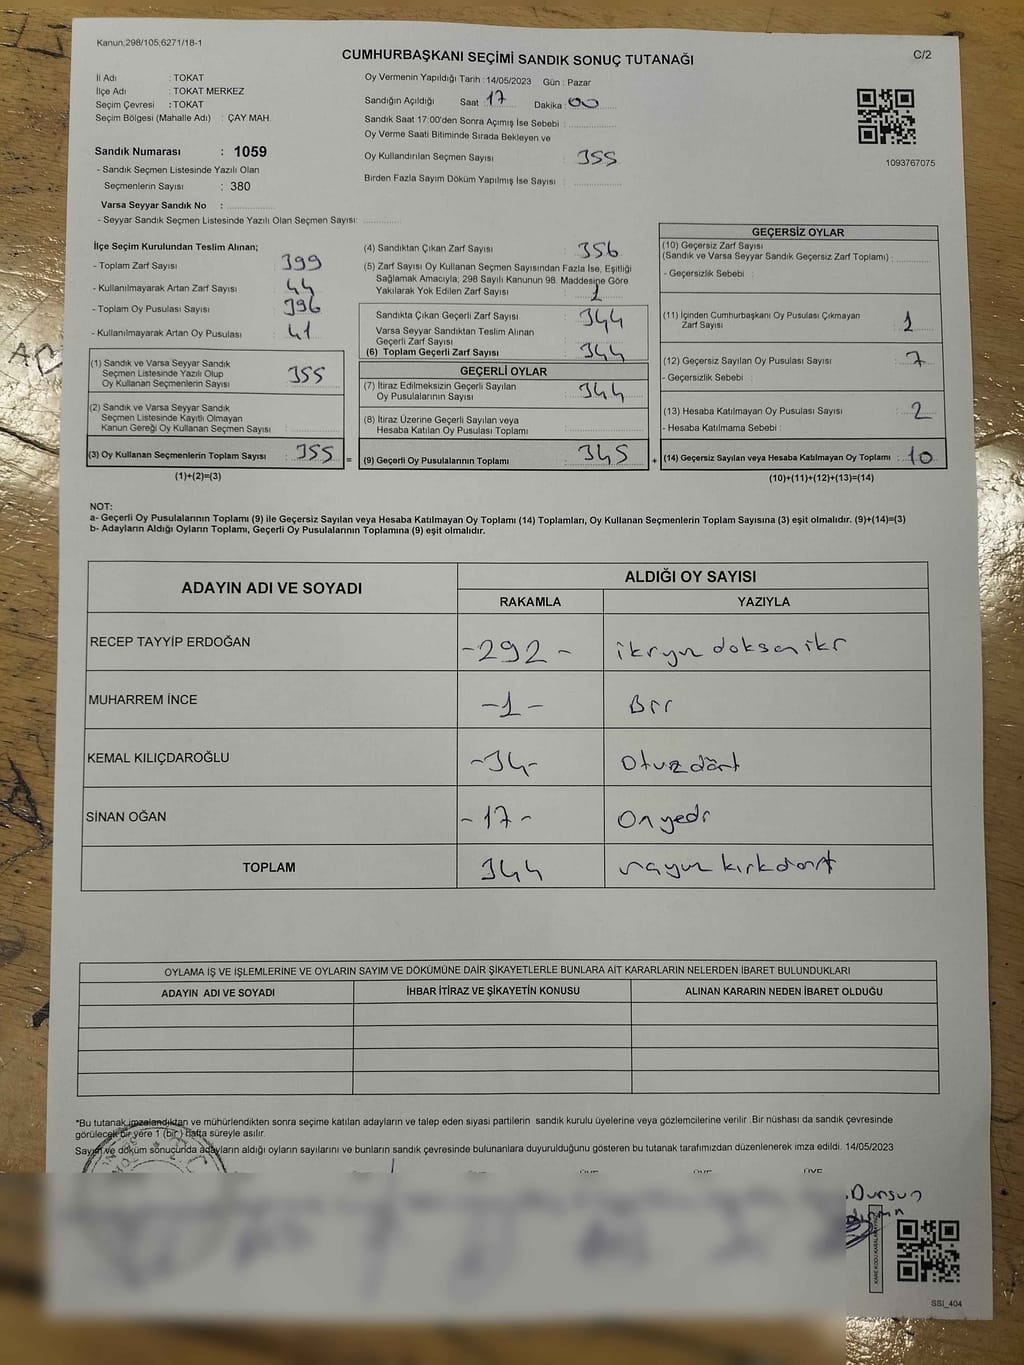 Kanun;298/105;6271/18-1
CUMHURBAŞKANI SEÇİMİ SANDIK SONUÇ TUTANAĞI
C/2
İl Adı : TOKAT
İlçe Adı : TOKAT MERKEZ
Seçim Çevresi : TOKAT
Seçim Bölgesi (Mahalle Adı) : ÇAY MAH.
Sandık Numarası : 1059
- Sandık Seçmen Listesinde Yazılı Olan
Seçmenlerin Sayısı : 380
Varsa Seyyar Sandık No :
- Seyyar Sandık Seçmen Listesinde Yazılı Olan Seçmen Sayısı:
Oy Vermenin Yapıldığı Tarih : 14/05/2023 Gün : Pazar
Sandığın Açıldığı Saat 17 Dakika : 00
Sandık Saat 17:00'den Sonra Açımış İse Sebebi :
Oy Verme Saati Bitiminde Sırada Bekleyen ve
Oy Kullandırılan Seçmen Sayısı : 355
Birden Fazla Sayım Döküm Yapılmış İse Sayısı :
1093767075
İlçe Seçim Kurulundan Teslim Alınan;
- Toplam Zarf Sayısı : 399
- Kullanılmayarak Artan Zarf Sayısı : 44
- Toplam Oy Pusulası Sayısı : 396
- Kullanılmayarak Artan Oy Pusulası : 41
(1) Sandık ve Varsa Seyyar Sandık
Seçmen Listesinde Yazılı Olup
Oy Kullanan Seçmenlerin Sayısı : 355
(2) Sandık ve Varsa Seyyar Sandık
Seçmen Listesinde Kayıtlı Olmayan
Kanun Gereği Oy Kullanan Seçmen Sayısı :
(3) Oy Kullanan Seçmenlerin Toplam Sayısı : 355 =
(1)+(2)=(3)
(4) Sandıktan Çıkan Zarf Sayısı : 356
(5) Zarf Sayısı Oy Kullanan Seçmen Sayısından Fazla İse, Eşitliği
Sağlamak Amacıyla; 298 Sayılı Kanunun 98. Maddesine Göre
Yakılarak Yok Edilen Zarf Sayısı : 1
Sandıkta Çıkan Geçerli Zarf Sayısı : 344
Varsa Seyyar Sandıktan Teslim Alınan
Geçerli Zarf Sayısı :
(6) Toplam Geçerli Zarf Sayısı : 344
GEÇERLİ OYLAR
(7) İtiraz Edilmeksizin Geçerli Sayılan
Oy Pusulalarının Sayısı : 344
(8) İtiraz Üzerine Geçerli Sayılan veya
Hesaba Katılan Oy Pusulası Toplamı :
(9) Geçerli Oy Pusulalarının Toplamı : 345 +
GEÇERSİZ OYLAR
(10) Geçersiz Zarf Sayısı
(Sandık ve Varsa Seyyar Sandık Geçersiz Zarf Toplamı) :
- Geçersizlik Sebebi :
(11) İçinden Cumhurbaşkanı Oy Pusulası Çıkmayan
Zarf Sayısı : 1
(12) Geçersiz Sayılan Oy Pusulası Sayısı : 7
- Geçersizlik Sebebi :
(13) Hesaba Katılmayan Oy Pusulası Sayısı : 2
- Hesaba Katılmama Sebebi :
(14) Geçersiz Sayılan veya Hesaba Katılmayan Oy Toplamı : 10
(10)+(11)+(12)+(13)=(14)
NOT:
a- Geçerli Oy Pusulalarının Toplamı (9) ile Geçersiz Sayılan veya Hesaba Katılmayan Oy Toplamı (14) Toplamları, Oy Kullanan Seçmenlerin Toplam Sayısına (3) eşit olmalıdır. (9)+(14)=(3)
b- Adayların Aldığı Oyların Toplamı, Geçerli Oy Pusulalarının Toplamına (9) eşit olmalıdır.
ADAYIN ADI VE SOYADI
ALDIĞI OY SAYISI
RAKAMLA YAZIYLA
RECEP TAYYİP ERDOĞAN -292- ikiyüz doksan iki
MUHARREM İNCE -1- Bir
KEMAL KILIÇDAROĞLU -34- Otuz dört
SİNAN OĞAN -17- On yedi
TOPLAM 344 kırkdört
OYLAMA İŞ VE İŞLEMLERİNE VE OYLARIN SAYIM VE DÖKÜMÜNE DAİR ŞİKAYETLERLE BUNLARA AİT KARARLARIN NELERDEN İBARET BULUNDUKLARI
ADAYIN ADI VE SOYADI İHBAR İTİRAZ VE ŞİKAYETİN KONUSU ALINAN KARARIN NEDEN İBARET OLDUĞU
*Bu tutanak imzalandıktan ve mühürlendikten sonra seçime katılan adayların ve talep eden siyasi partilerin sandık kurulu üyelerine veya gözlemcilerine verilir .Bir nüshası da sandık çevresinde
görülecek bir yere 1 (bir ) hafta süreyle asılır.
Sayım ve döküm sonucunda adayların aldığı oyların sayılarını ve bunların sandık çevresinde bulunanlara duyurulduğunu gösteren bu tutanak tarafımızdan düzenlenerek imza edildi. 14/05/2023
ÜYE ÜYE ÜYE
Dursun
SSI_404